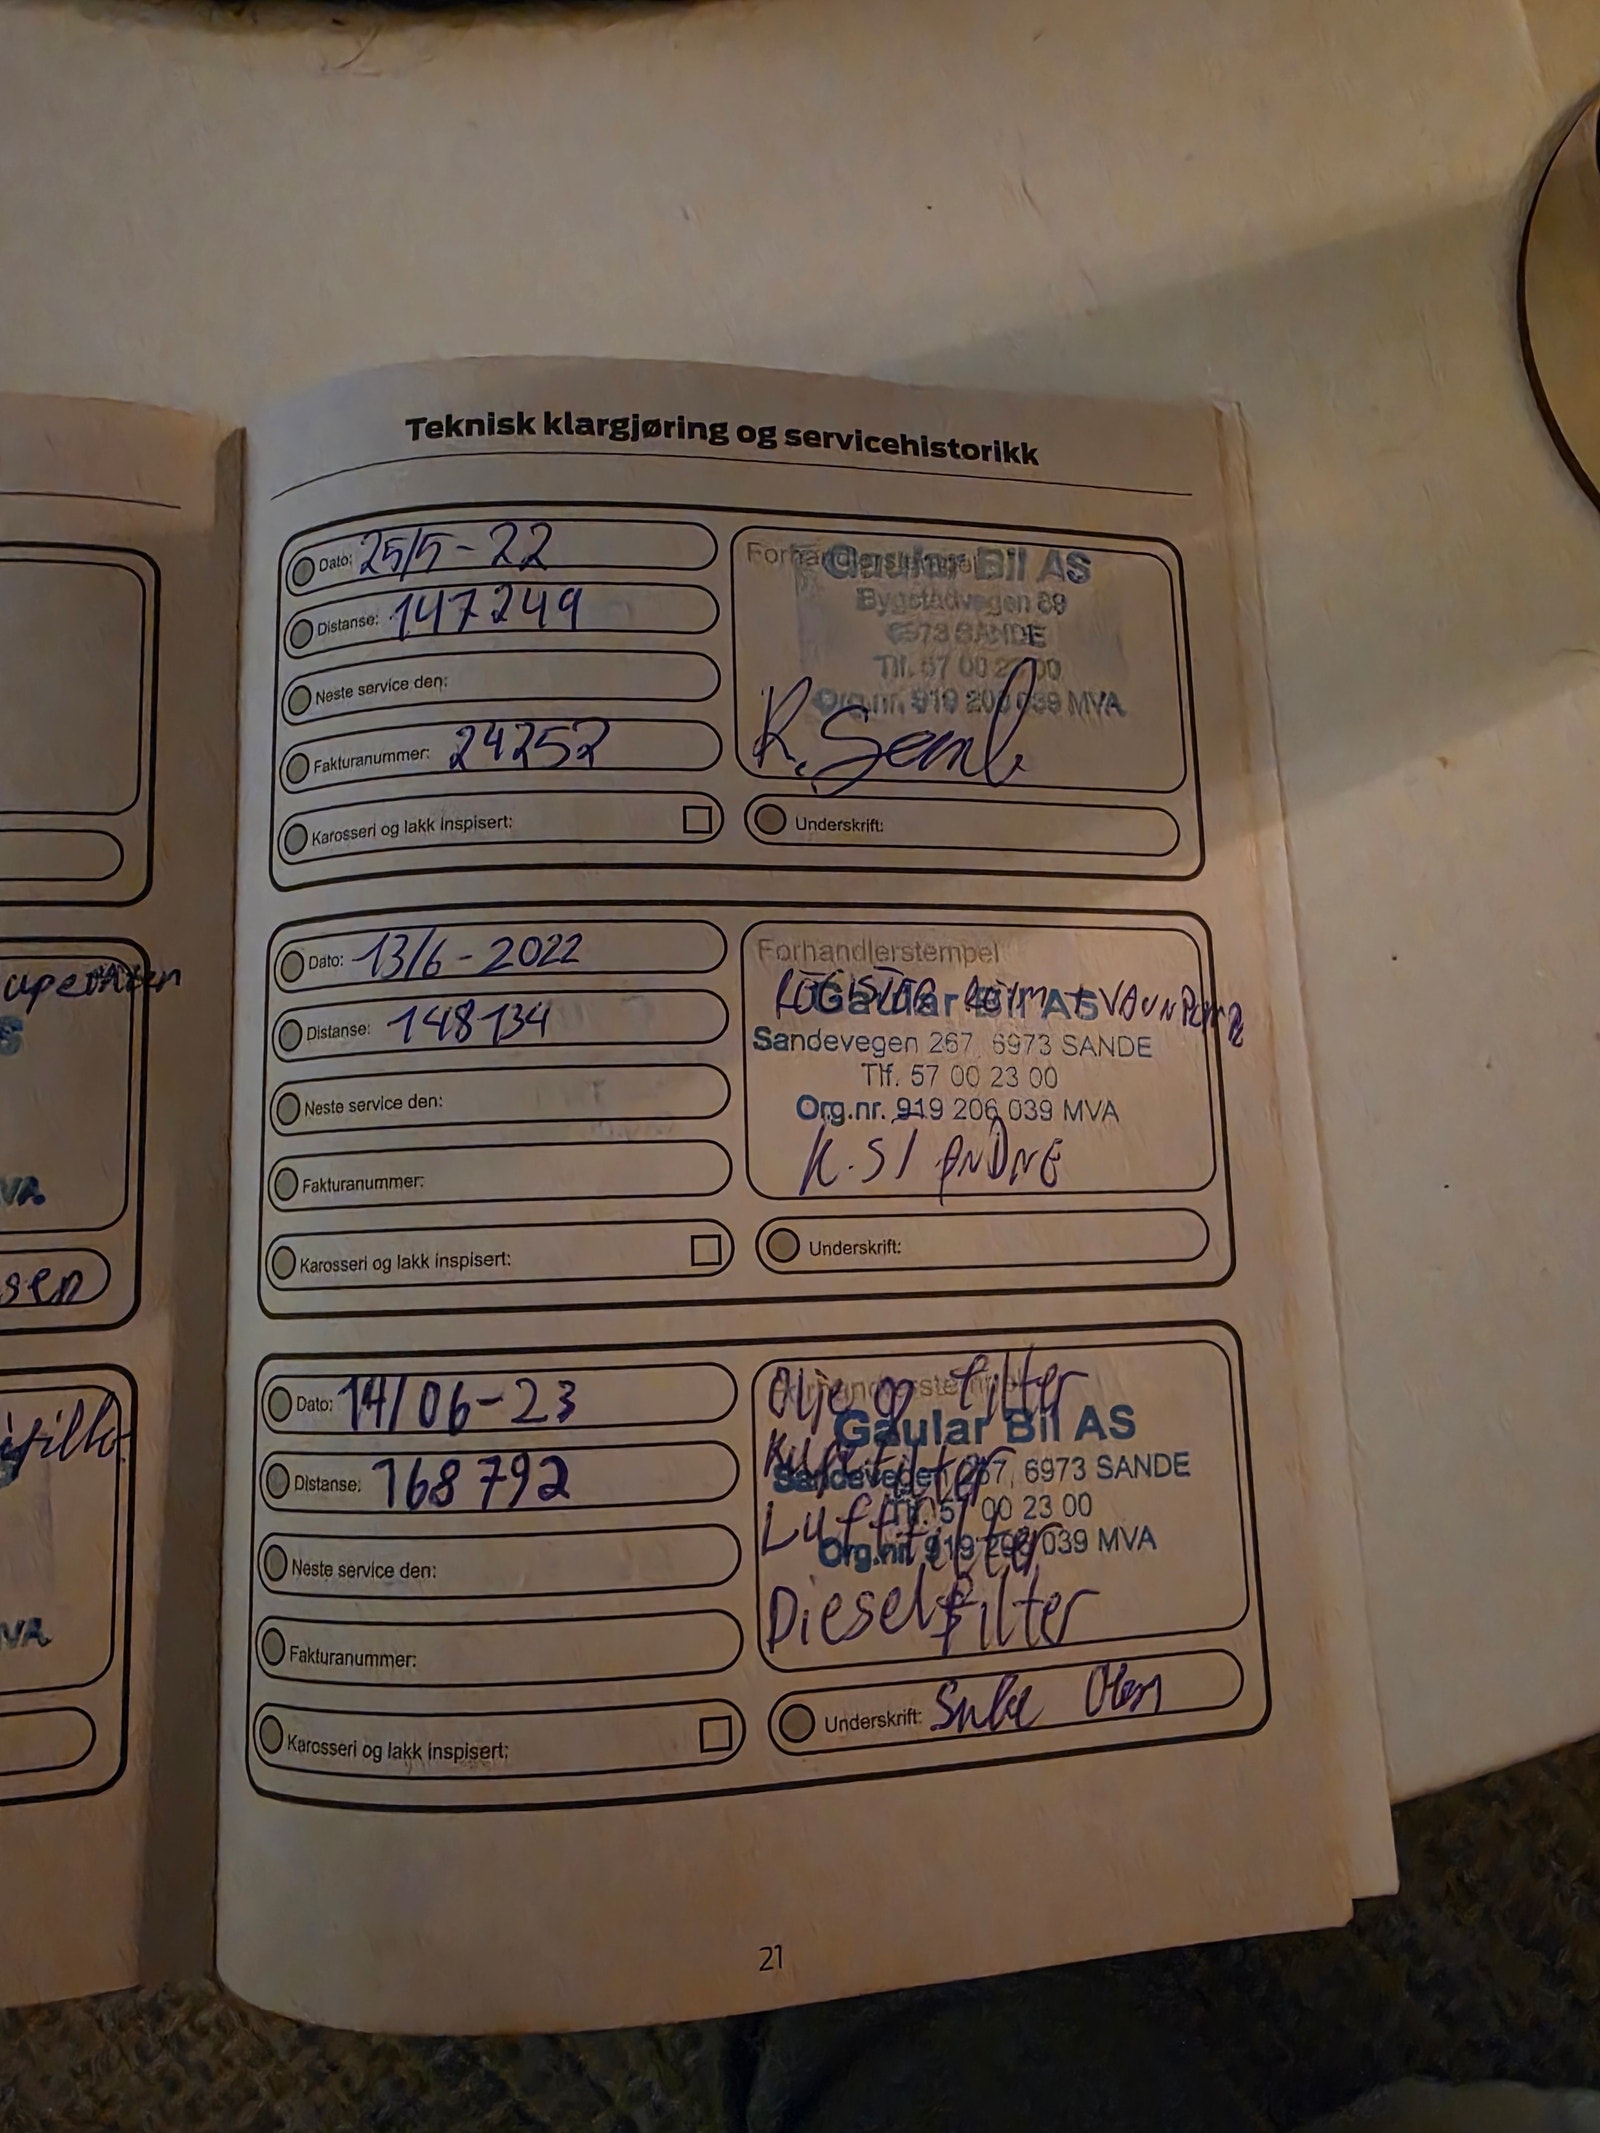 Teknisk klargjøring og servicehistorikk
Dato: 25/5-22
Distanse: 147249
Neste service den:
Fakturanummer: 24252
Karosseri og lakk inspisert:
Forhandlerstempel
Gaular Bil AS
Bygstadvegen 89
6973 SANDE
Tlf. 57 00 23 00
Org.nr. 919 206 039 MVA
Underskrift:
Dato: 13/6-2022
Distanse: 148134
Neste service den:
Fakturanummer:
Karosseri og lakk inspisert:
Forhandlerstempel
Gaular Bil AS
Sandevegen 267, 6973 SANDE
Tlf. 57 00 23 00
Org.nr. 919 206 039 MVA
Underskrift:
Dato: 14/06-23
Distanse: 168792
Neste service den:
Fakturanummer:
Karosseri og lakk inspisert:
Forhandlerstempel
Olje og filter
Gaular Bil AS
Sandevegen 267, 6973 SANDE
Tlf. 57 00 23 00
Luftfilter
Org.nr. 919 206 039 MVA
Dieselfilter
Underskrift:
21